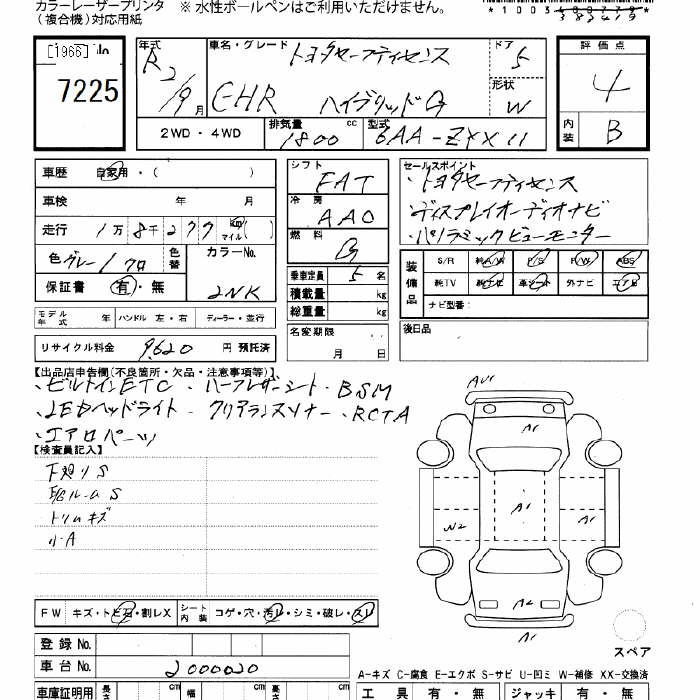 カラーレーザープリンタ ※ 水性ボールペンはご利用いただけません。
(複合機)対応用紙
[1966] No
7225
年式 R2/9月
車名・グレード トヨタセーフティセンス
C-HR ハイブリッドG
ドア 5
形状 W
2WD・4WD
排気量 1800 cc
型式 6AA-ZYX11
評価点 4
内装 B
車歴 自家用・( )
車検 年 月
走行 1万8千277 km マイル( )
色 グレー/クロ 色替 カラーNo. 2NK
保証書 有・無
モデル年式 年 ハンドル 左・右 ディーラー・並行
リサイクル料金 9,620 円 預託済
シフト FAT
冷房 AAC
燃料 G
乗車定員 5 名
積載量 kg
総重量 kg
名変期限 月 日
セールスポイント
・トヨタセーフティセンス
・ディスプレイオーディオナビ
・パノラミックビューモニター
装備品 S/R 純A/W P/S P/W ABS
純TV 純ナビ 革シート 外ナビ エアB
ナビ型番:
後日品
【出品店申告欄(不良箇所・欠品・注意事項等)】
・ビルトインETC ・ハーフレザーシート・BSM
・LEDヘッドライト ・クリアランスソナー・RCTA
・エアロパーツ
【検査員記入】
下廻りS
E/ルームS
トリムキズ
小A
AU1
A1
A1
N2
A1
A2
スペア
FW キズ・トビ石・割レX シート内装 コゲ・穴・汚レ・シミ・破レ・スレ
登録No.
車台No. 2000020
A-キズ C-腐食 E-エクボ S-サビ U-凹ミ W-補修 XX-交換済
車庫証明用 長さ cm 幅 cm 高さ cm
工具 有・無 ジャッキ 有・無